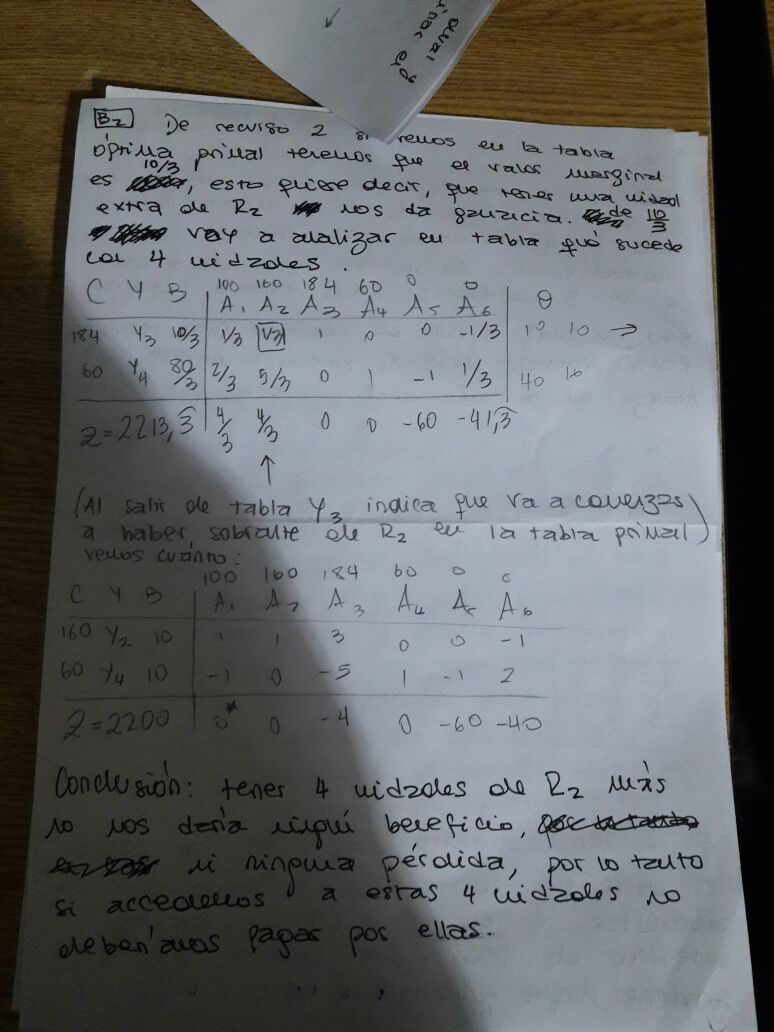 B2 De recurso 2 si vemos en la tabla
óptima primal tenemos que el valor marginal
es 10/3, esto quiere decir, que tener una unidad
extra de R2 nos da ganancia de 10/3
voy a analizar en tabla qué sucede
con 4 unidades.
100 160 184 60 0 0
C Y B A1 A2 A3 A4 A5 A6 θ
184 Y3 10/3 1/3 1/3 1 0 0 -1/3 10 10 →
60 Y4 80/3 2/3 5/3 0 1 -1 1/3 40 16
Z=2213,3 4/3 4/3 0 0 -60 -41,3
↑
(Al salir de tabla Y3 indica que va a comenzar
a haber sobrante de R2 en la tabla primal)
vemos cuánto:
100 160 184 60 0 0
C Y B A1 A2 A3 A4 A5 A6
160 Y2 10 1 1 3 0 0 -1
60 Y4 10 -1 0 -5 1 -1 2
Z=2200 0* 0 -4 0 -60 -40
Conclusión: tener 4 unidades de R2 más
no nos daría ningún beneficio,
ni ninguna pérdida, por lo tanto
si accedemos a estas 4 unidades no
deberíamos pagar por ellas.